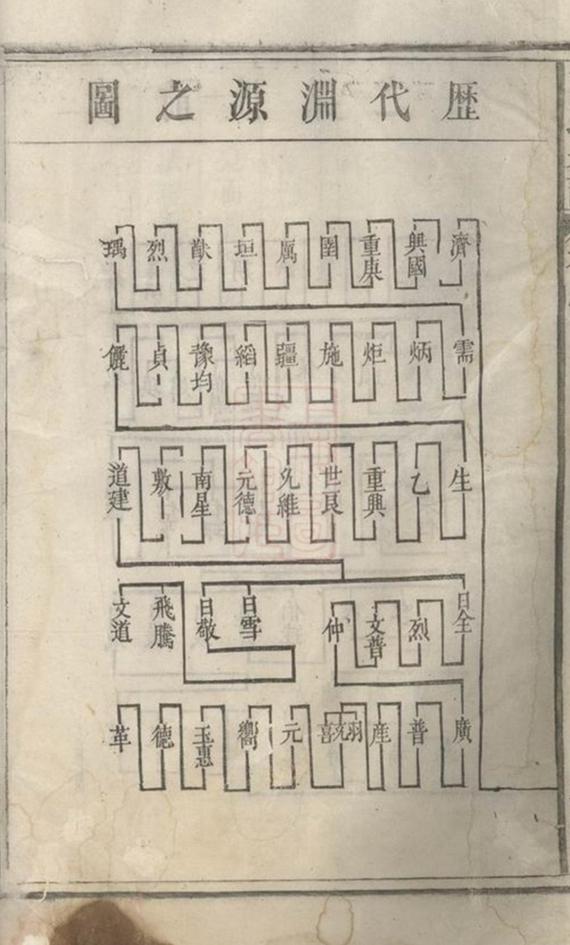 歷代淵源之圖
濟 興國 重庚 圉 厲 垣 猷 烈 瑀
需 炳 炬 施 疆 縚 豫均 貞 儷
生 乙 重興 世艮 允維 元德 南星 敷 道建
日全 烈 文普 仲 日雪 日敬 飛騰 文道
廣 普 産 羽 喜 元 嚮 玉惠 德 革